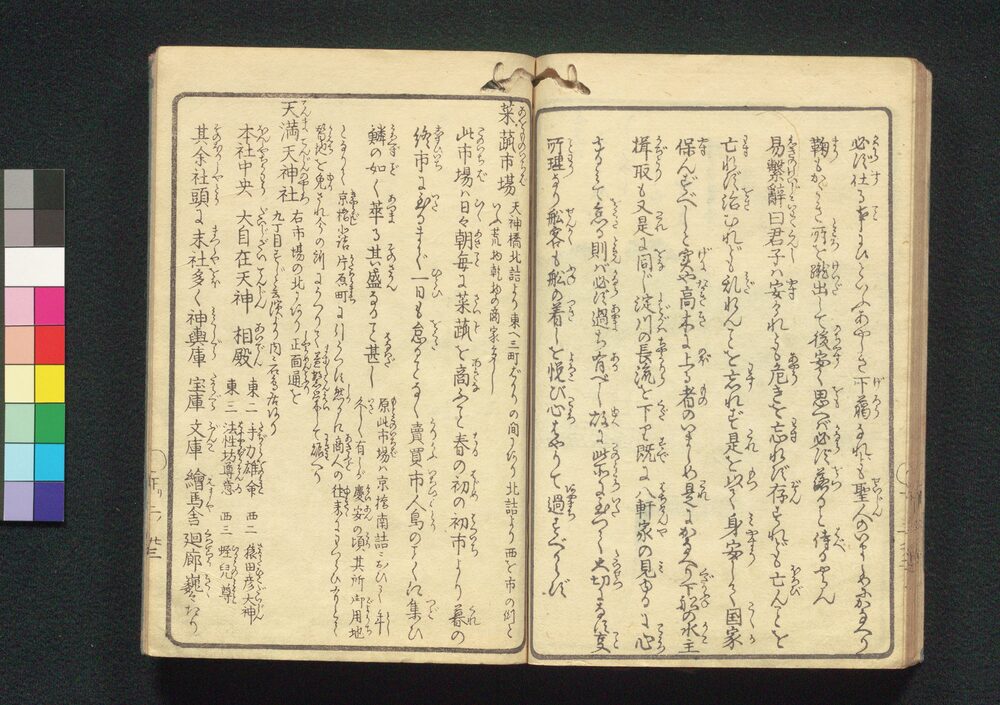 必ず仕る事にひとしあやしき下﨟なれども聖人のいましめにかなへり
鞠もかたき所を蹴出して後安く思へば必ず落ると侍るやらん
易繋辞曰君子ハ安けれども危きを忘れず存すれども亡んことを
亡れず治むれども乱れんことを忘れず是を以て身安くして国家
保んずべしと実や高木に上る者のいましめ是にかなへり下船の水主
楫取も又是に同じ淀川の長流を下りて既に八軒家の見ゆるに心
ゆるみて怠る則ハ必ず過ち有べし故に此所に至つて大切にする事
所理なり船客も船の着しを悦び心はやりて過すべからず
菜蔬市場 天神橋北詰より東へ三町ばかりの間なり北詰より西を市の側と
いふ荒物乾物の商家多し
此市場ハ日々朝毎に菜蔬を商ふこと春の初の初市より暮の
終市に至るまで一日も怠ることなく賣買市人鳥のごとくに集ひ
鱗の如く萃る其盛なる事甚し 原此市場ハ京橋南詰にありし年
久しく有しが慶安の頃其所御用地
となりて京橋北詰片原町に引うつる然るに商人の仕来にわづらひありとて
替地を免され今の所にうつりて益繁栄して
天満天神社 右市場の北にあり正面通を
九丁目すじといふ
本社中央 大自在天神 相殿 東二 手力雄命 西二 猿田彦大神
東三 法性坊尊意 西三 蛭児尊
其余社頭に末社多く神輿庫 宝庫 文庫 繪馬舎 廻廊巍々たり